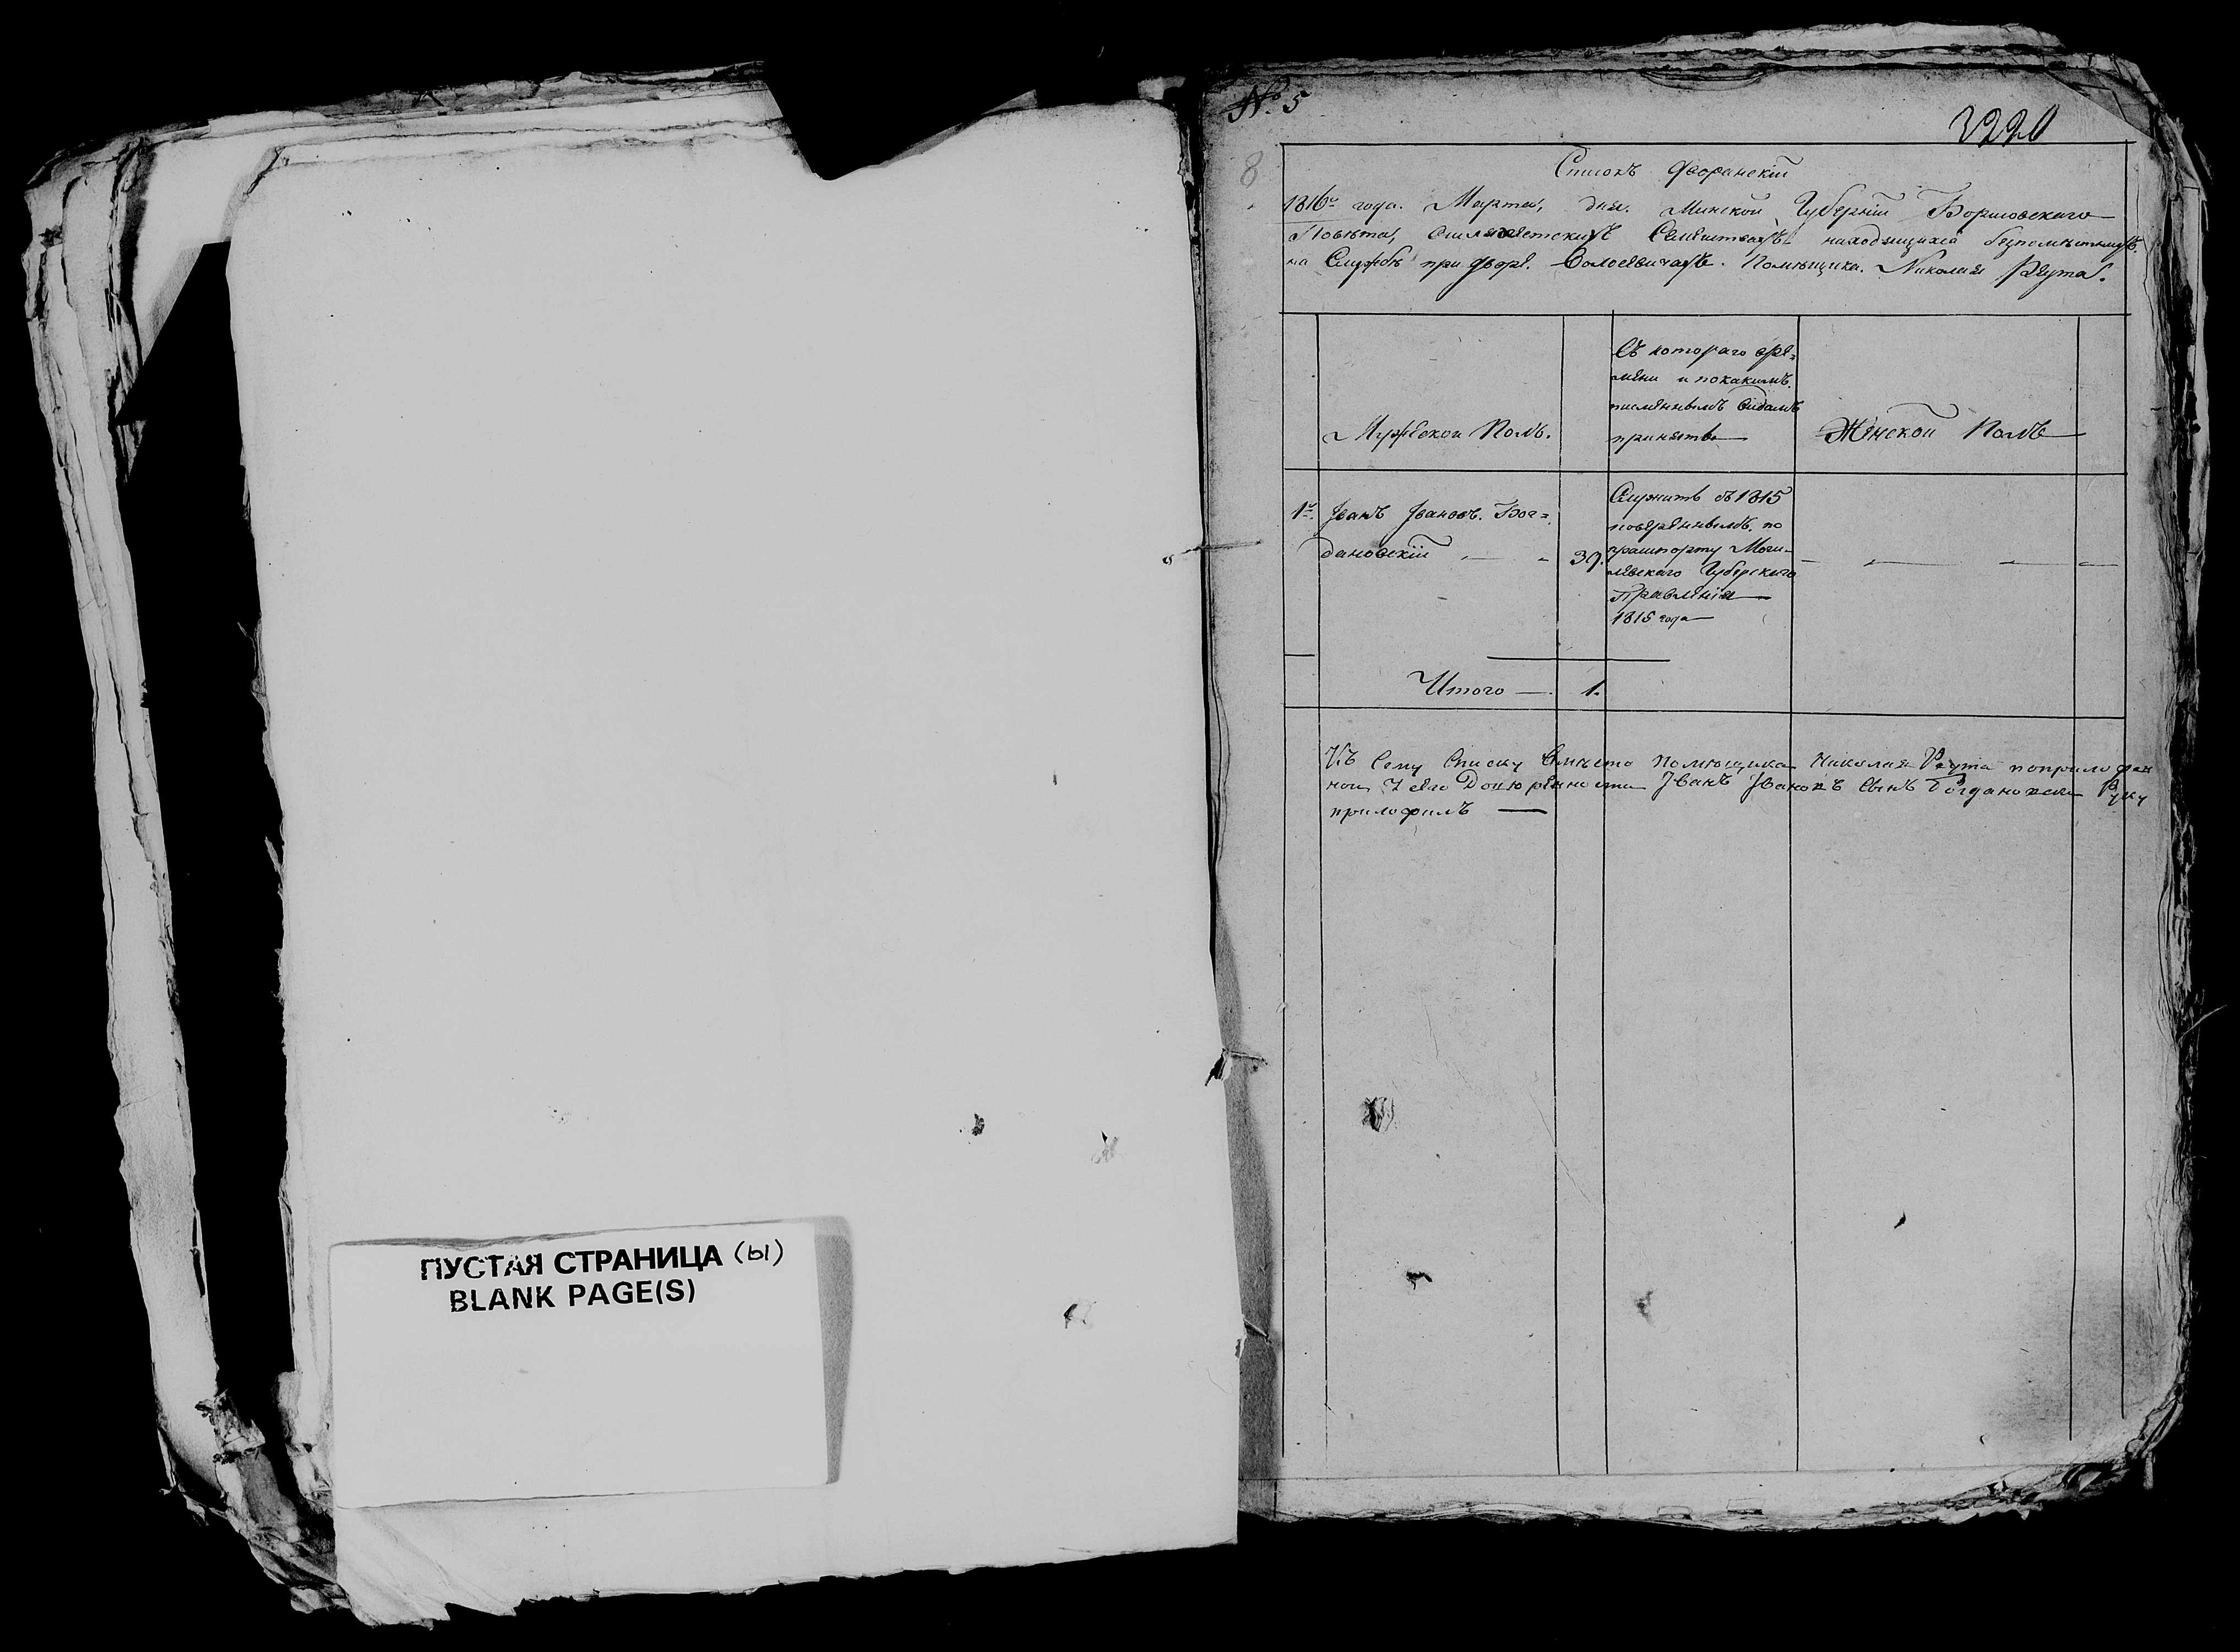 ПУСТАЯ СТРАНИЦА (ы)
BLANK PAGE(S)
№ 5
8
Списокъ дворянскій
1816го года. Марта, дня. Минской Губерніи Борисовскаго
Повѣта, Семействахъ находящихся
на Службѣ при дворѣ. Волосевичахъ. Помѣщика. Николая Реута.
Съ котораго вре=
мени и покакимъ.
писменнымъ видамъ
Мужеской Полъ.
принятъ
Женской Полъ
1й. Іванъ Івановъ. Бог=
дановскій
39.
Служитъ съ 1815
повѣреннымъ. по
пашпорту Моги-
левскаго Губерскаго
Правленія
1815 года
Итого 1.
Къ Сему Списку вмѣсто помѣщика Николая Реута поприложен
ной Іванъ Івановъ Сынъ Богдановски Руку
приложилъ